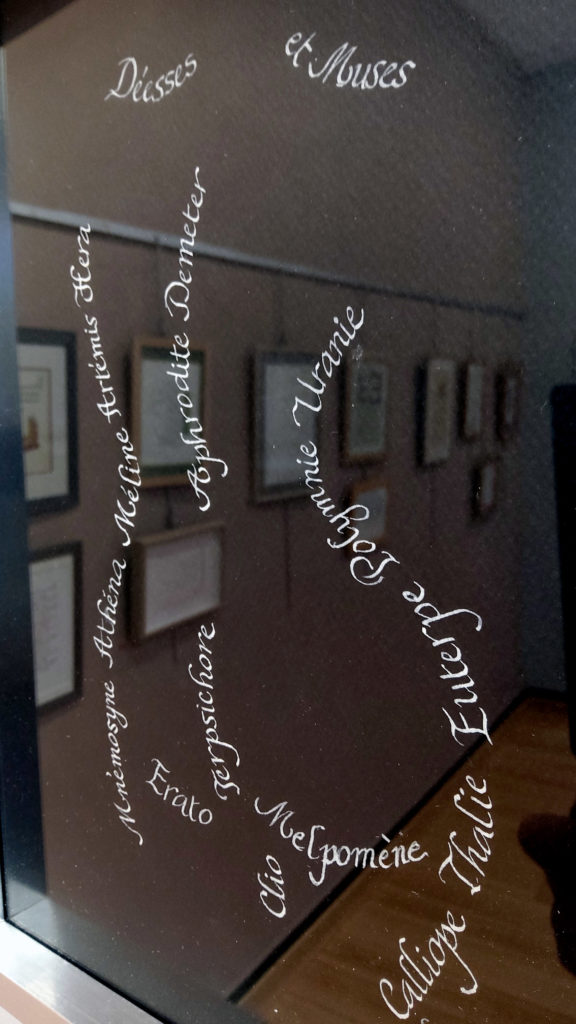 Déesses et Muses
Mnémosyne Athéna Méline Artémis Hera
Aphrodite Demeter
Polymnie Uranie
Terpsichore
Euterpe
Erato
Melpomène
Clio
Calliope Thalie